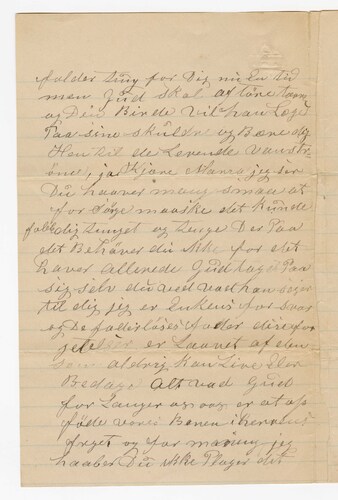 falder tung for Dig nu En tid
men Gud skal
og Din Birde vil han Legi
Paa sine skuldre og Bære dig
Hen til de Levende vanstr
öme, ja Kjære Mame jeg ser
Du haaver mang smaa at
for sörge maaske det kunde
falde dig Tungt og Tunge Der Paa
det Behöver du ikke for det
haver allerede Gud taget Paa
sig selv du ved vad han seger
til dig jeg er Enkens for svar
og De fadderlöses fader dine for
er Laavet af
som aldrig kan Live Eler
Bedage Alt vad Gud
for Langer af os er at
vores Benen i
og for maning jeg
haaber Du ikke Plager dit